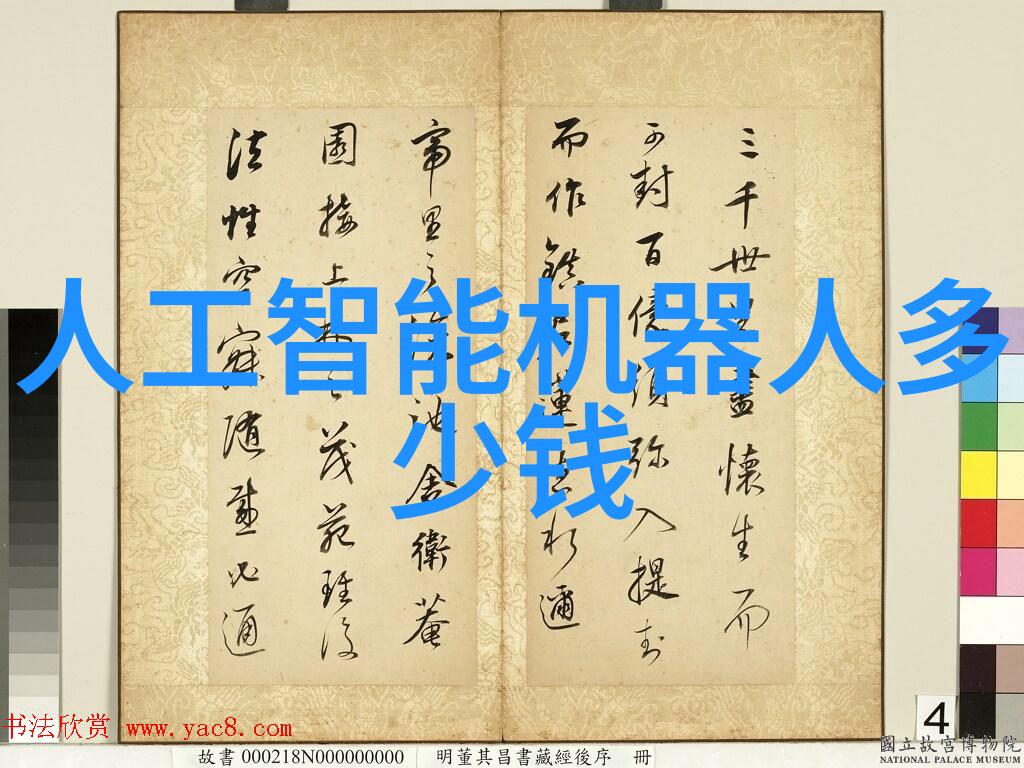 人工智能机器人多
少钱
三千世界盡懷生而
可封百億須弥入提封
而作鎮蓮邇
帝里之池舍衛菴
園接上林之茂苑
法性空寂随感必通
书法欣赏 www.yac8.com
故書 000218N000000000 明董其昌書藏經後序 冊
4
國立故宮博物院
NATIONAL PALACE MUSEUM